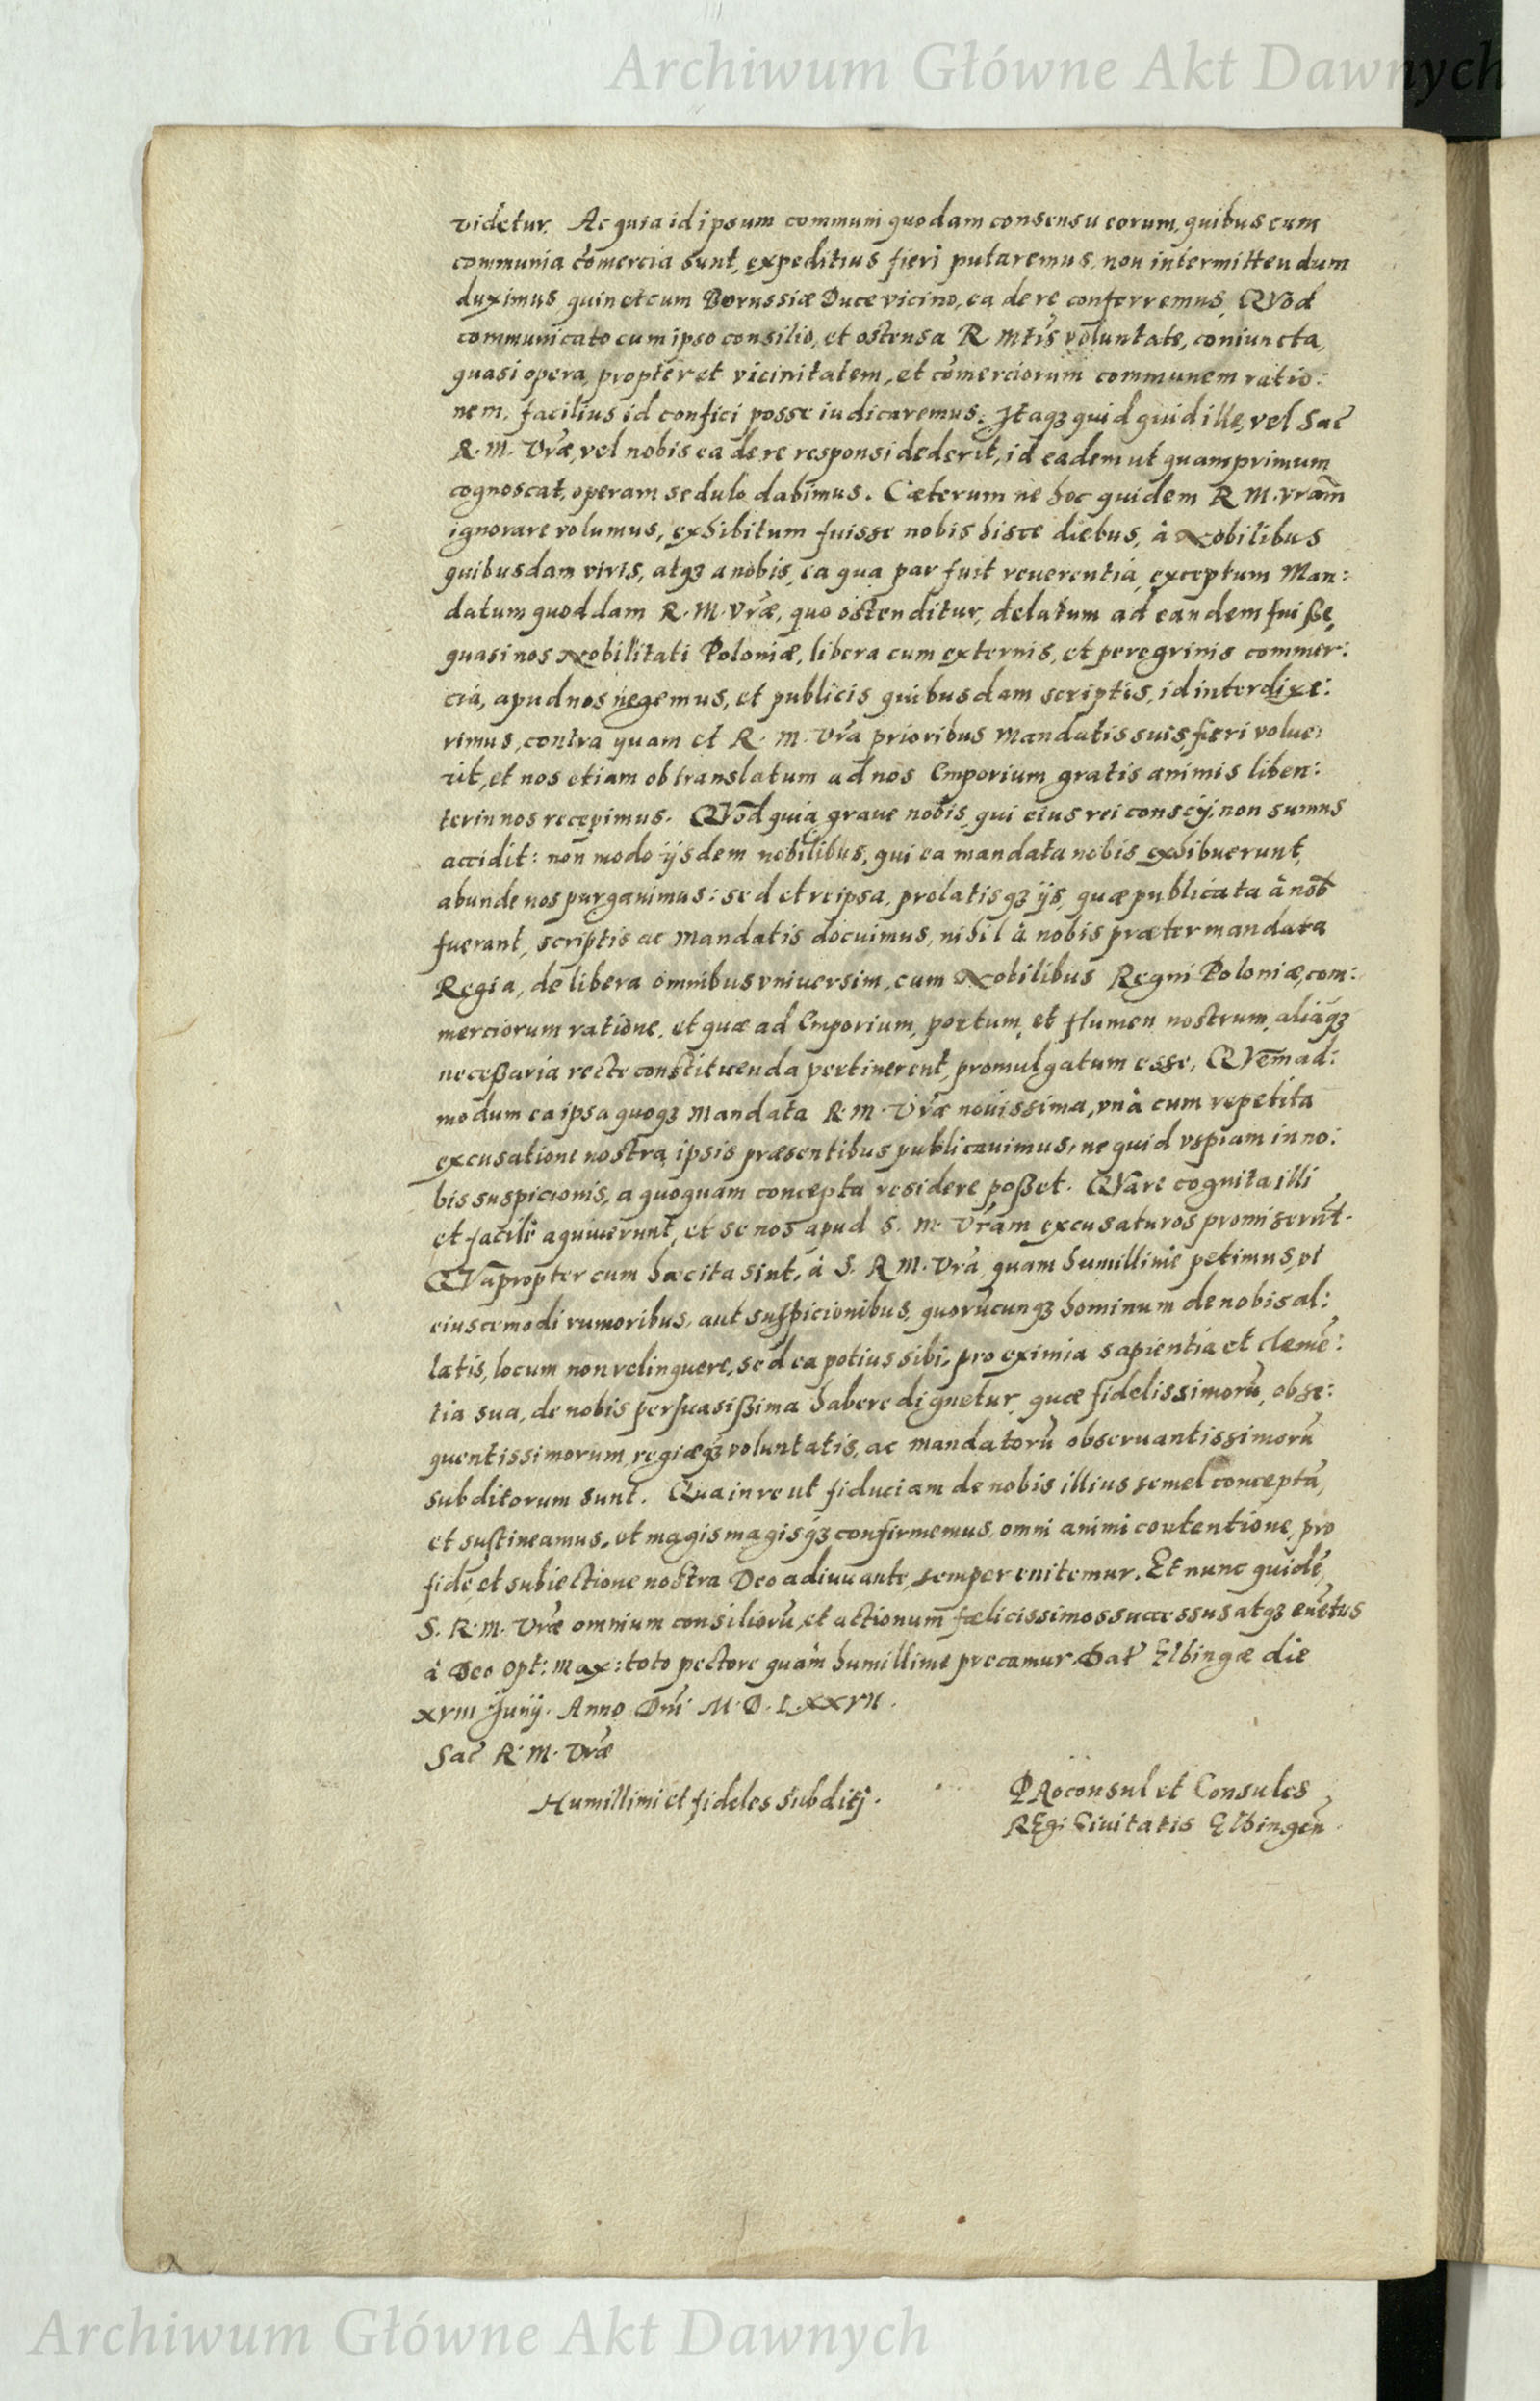 Archiwum Główne Akt Dawnych
videtur. Ac quia id ipsum communi quodam consensu eorum, quibus cum
communia cōmercia sunt, expeditius fieri putaremus, non intermittendum
duximus, quin et cum Borussiæ Duce vicino, ea de re conferremus, QVod
communicato cum ipso consilio, et ostensa R. Mtis voluntate, coniuncta,
quasi opera, propter et vicinitatem, et cōmerciorum communem ratio:
nem, facilius id confici posse iudicaremus. Itaqȝ quidquid ille, vel Sac̄
R. M. Vrǣ, vel nobis ea de re responsi dederit, id eadem ut quamprimum
cognoscat, operam sedulo dabimus. Cæterum ne hoc quidem R. M. vram̄
ignorare volumus, exhibitum fuisse nobis hisce diebus, à Nobilibus
quibusdam viris, atqȝ a nobis, ea qua par fuit reuerentia, exceptum Man:
datum quoddam R. M. Vrǣ, quo ostenditur, delatum ad eandem fuiße,
quasi nos Nobilitati Poloniæ, libera cum externis, et peregrinis commer:
cia, apud nos negemus, et publicis quibusdam scriptis, id interdixe:
rimus, contra quam et R. M. Vrā prioribus mandatis suis, fieri volue:
rit, et nos etiam ob translatum ad nos Emporium gratis animis liben:
ter in nos recepimus. QVod quia graue nobis, qui eius rei conscij, non sumus
accidit: non modo ijsdem nobilibus, qui ea mandata nobis exhibuerunt,
abunde nos purgauimus: sed et reipsa, prolatisqȝ ijs, quæ publicata à nob̄
fuerant, scriptis ac mandatis docuimus, nihil à nobis præter mandata
Regia, de libera omnibus vniuersim, cum Nobilibus Regni Poloniæ, com:
merciorum ratione, et quæ ad Emporium, portum, et flumen nostrum, aliaqȝ
neceßaria recte constituenda pertinerent, promulgatum esse, QVemad:
modum ea ipsa quoqȝ mandata R. M. Vrǣ nouissima, vnà cum repetita
excusatione nostra, ipsis præsentibus publicauimus, ne quid vspiam in no:
bis suspicionis, a quoquam concepta residere poßet. QVare cognita illi
et facilè aquieuerunt, et se nos apud S. M. Vrām excusaturos promiserūt.
QVapropter cum hæc ita sint, à S. R. M. Vrā, quam humillimè petimus, vt
eiuscemodi rumoribus, aut suspicionibus, quorūcunqȝ hominum de nobis al:
latis, locum non relinquere, sed ea potius sibi, pro eximia sapientia et clemē:
tia sua, de nobis persuasißima habere dignetur, quæ fidelissimorū, obse:
quentissimorum, regiæqȝ voluntatis, ac mandatorū obseruantissimorū
subditorum sunt. Qua in re ut fiduciam de nobis illius semel conceptā,
et sustineamus, et magis magisqȝ confirmemus, omni animi contentione, pro
fide, et subiectione nostra Deo adiuuante, semper enitemur. Et nunc quidē,
S. R. M. Vrǣ omnium consiliorū, et actionum fœlicissimos successus atqȝ euētus
à Deo Opt: Max: toto pectore quàm humillime precamur. Dat̄ Elbingæ die
XVIII Junij. Anno Dn̄i M. D. LXXVII.
Sac̄ R. M. Vrǣ
Humillimi et fideles subditj.
PRoconsul et Consules
REgi: Ciuitatis Elbingen̄.
Archiwum Główne Akt Dawnych